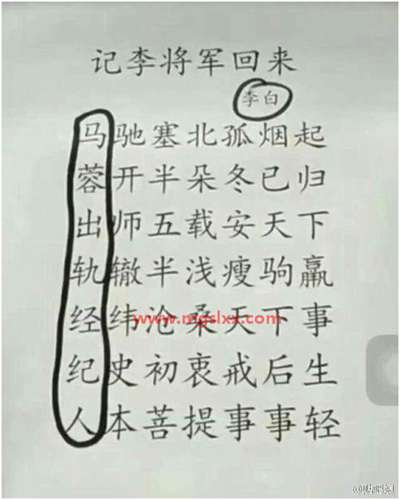 记李将军回来
李白
马驰塞北孤烟起
蓉开半朵冬已归
出师五载安天下
轨辙半浅瘦驹羸
经纬沧桑天下事
www.mgslxs.com
纪史初衷戒后生
人本菩提事事轻